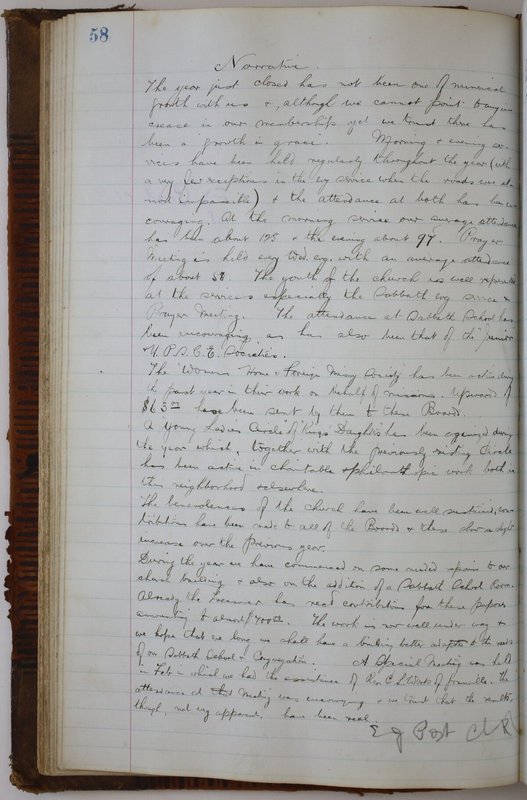 58
Narrative.
The year just closed has not been one of numerical
growth with us &, although we cannot point to any in
crease in our membership, yet we trust there has
been a growth in grace. Morning & evening ser
vices have been held regularly throughout the year (with
a very few exceptions in the evg service when the roads were al
most impassible) & the attendance at both has been en
couraging. At the morning service our average attendance
has been about 125 & the evening about 97. Prayer
Meeting is held every Wed. evg. with an average attendance
of about 58. The youth of the church is well represented
at the services especially the Sabbath evg service &
Prayer Meeting. The attendance at Sabbath School has
been encouraging, as has also been that of the Junior
& Y. P. S. C. E. Societies.
The Womens Home & Foreign Missy Society has been active during
the past year in their work on behalf of missions. Upward of
$63 have been sent by them to these Boards.
A Young Ladies Circle of King's Daughters has been organized during
the year which, together with the previously existing Circle
has been active in charitable & philanthropic work both in
this neighborhood & elsewhere.
The benevolences of the church have been well sustained, con
tributions have been made to all of the Boards & these show a slight
increase over the previous year.
During the year we have commenced on some needed repairs to our
church building & also on the addition of a Sabbath School Room.
Already the Treasurer has recd contributions for these purposes
amounting to almost $700. The work is now well under way &
we hope that ere long we shall have a building better adapted to the needs
of our Sabbath School & Congregation. A Special Meeting was held
in Feb in which we had the assistance of Rev C. L. of Granville. The
attendance at this Meeting was encouraging & we trust that the results,
though not very apparent, have been real.
E J Post Clk